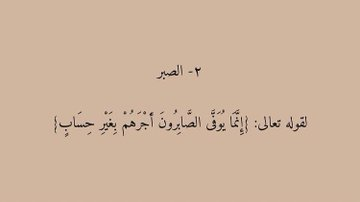 ٢- الصبر
لقوله تعالى: {إِنَّمَا يُوَفَّى الصَّابِرُونَ أَجْرَهُمْ بِغَيْرِ حِسَابٍ}